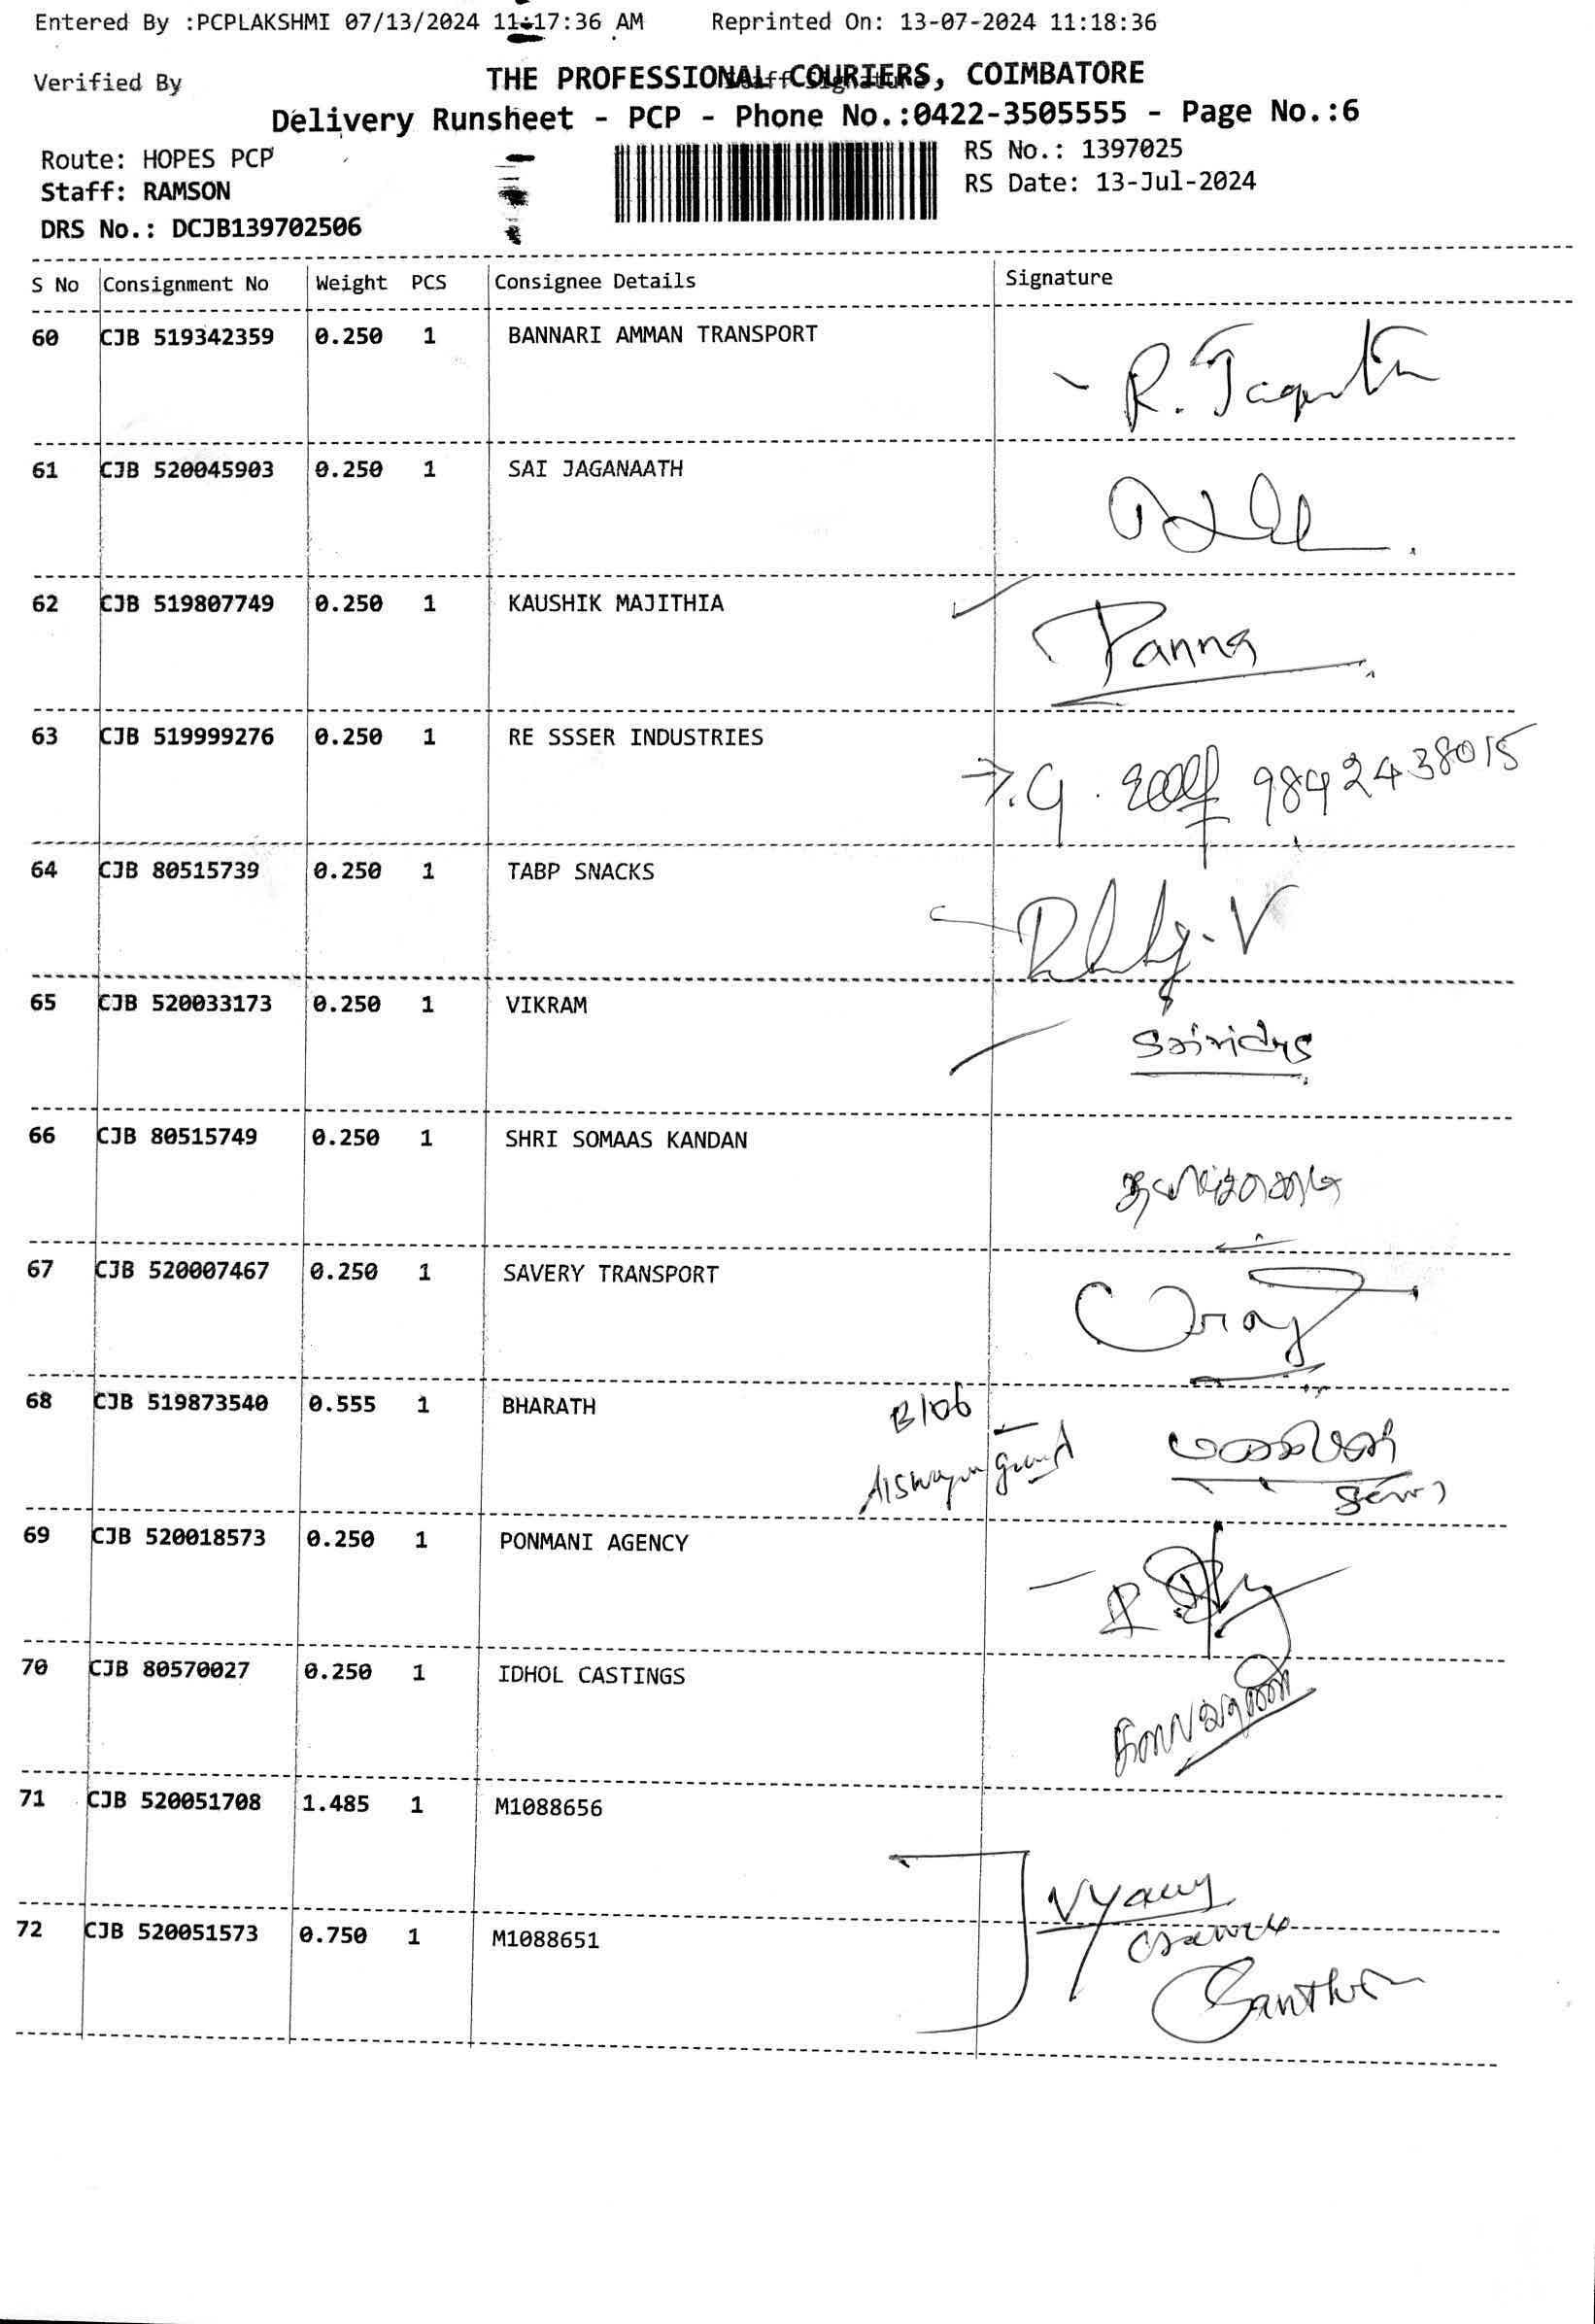 Entered By :PCPLAKSHMI 07/13/2024 11:17:36 AM Reprinted On: 13-07-2024 11:18:36
Verified By Staff Signature
THE PROFESSIONAL COURIERS, COIMBATORE
Delivery Runsheet - PCP - Phone No.:0422-3505555 - Page No.:6
Route: HOPES PCP RS No.: 1397025
Staff: RAMSON RS Date: 13-Jul-2024
DRS No.: DCJB139702506
S No Consignment No Weight PCS Consignee Details Signature
60 CJB 519342359 0.250 1 BANNARI AMMAN TRANSPORT
R.
61 CJB 520045903 0.250 1 SAI JAGANAATH
62 CJB 519807749 0.250 1 KAUSHIK MAJITHIA
Panna
63 CJB 519999276 0.250 1 RE SSSER INDUSTRIES
9842438015
64 CJB 80515739 0.250 1 TABP SNACKS
65 CJB 520033173 0.250 1 VIKRAM
66 CJB 80515749 0.250 1 SHRI SOMAAS KANDAN
67 CJB 520007467 0.250 1 SAVERY TRANSPORT
68 CJB 519873540 0.555 1 BHARATH
B106
69 CJB 520018573 0.250 1 PONMANI AGENCY
70 CJB 80570027 0.250 1 IDHOL CASTINGS
71 CJB 520051708 1.485 1 M1088656
72 CJB 520051573 0.750 1 M1088651